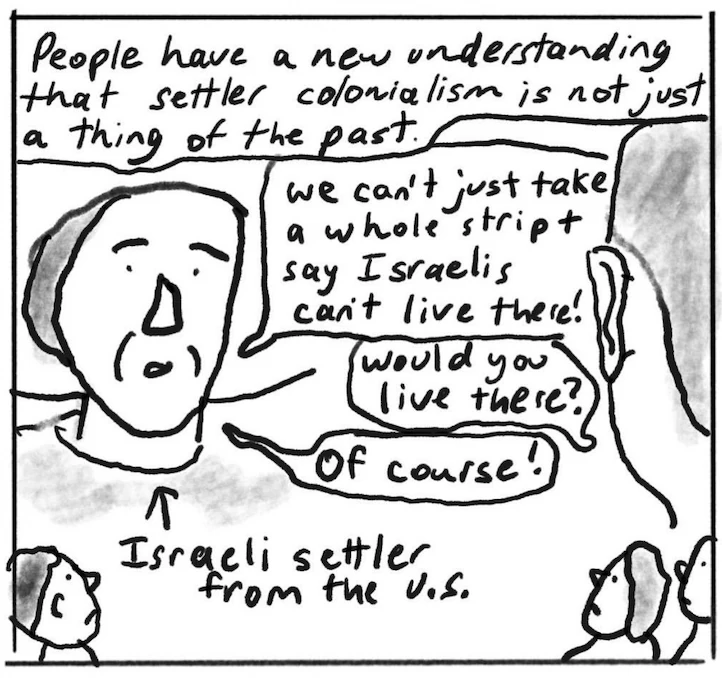 People have a new understanding
that settler colonialism is not just
a thing of the past.
we can't just take
a whole strip +
say Israelis
can't live there!
would you
live there?
Of course!
Israeli settler
from the U.S.